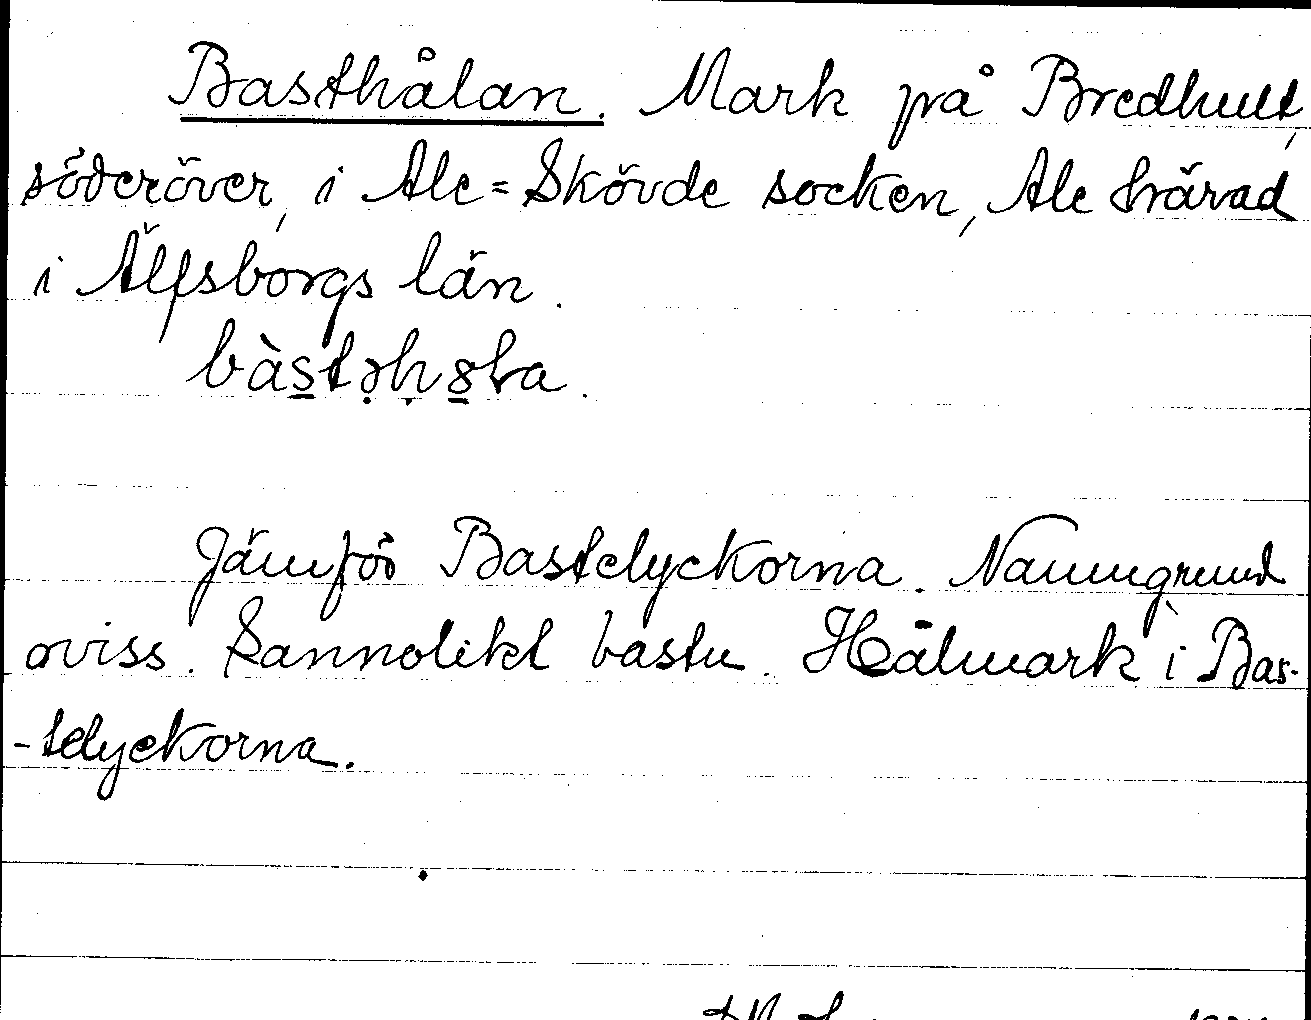 Basthålan. Mark på Bredhult,
söderöver, i Ale=Skövde socken, Ale härad
i Älfsborgs län.
bàstəhåla.
Jämför Bastelyckorna. Namngrund
oviss. Sannolikt bastu. Hålmark i Bas-
-telyckorna.